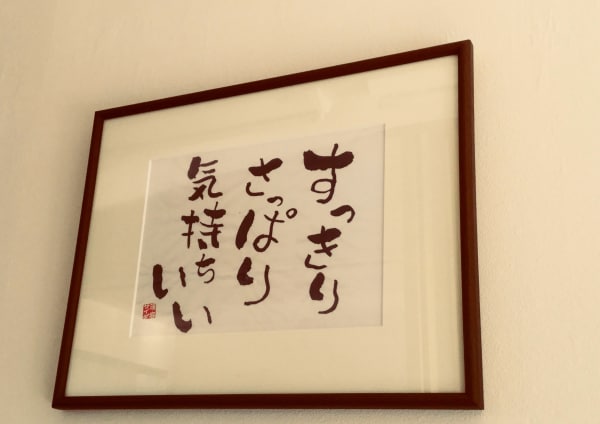 すっきり
さっぱり
気持ちいい